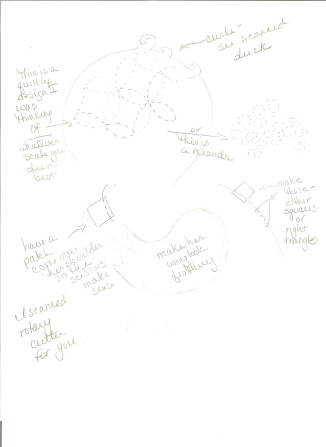 curls-
see scanned
duck
This is a
quilting
design I
was
thinking
of
whatever
scale you
deem
best
or
this is
a meander
make
these-
either
squares
or
right
triangles
have a
patch
come over
her shoulder
so the
scissors
make
sense
make her
wing look
feathery
I scanned
rotary
cutter
for you